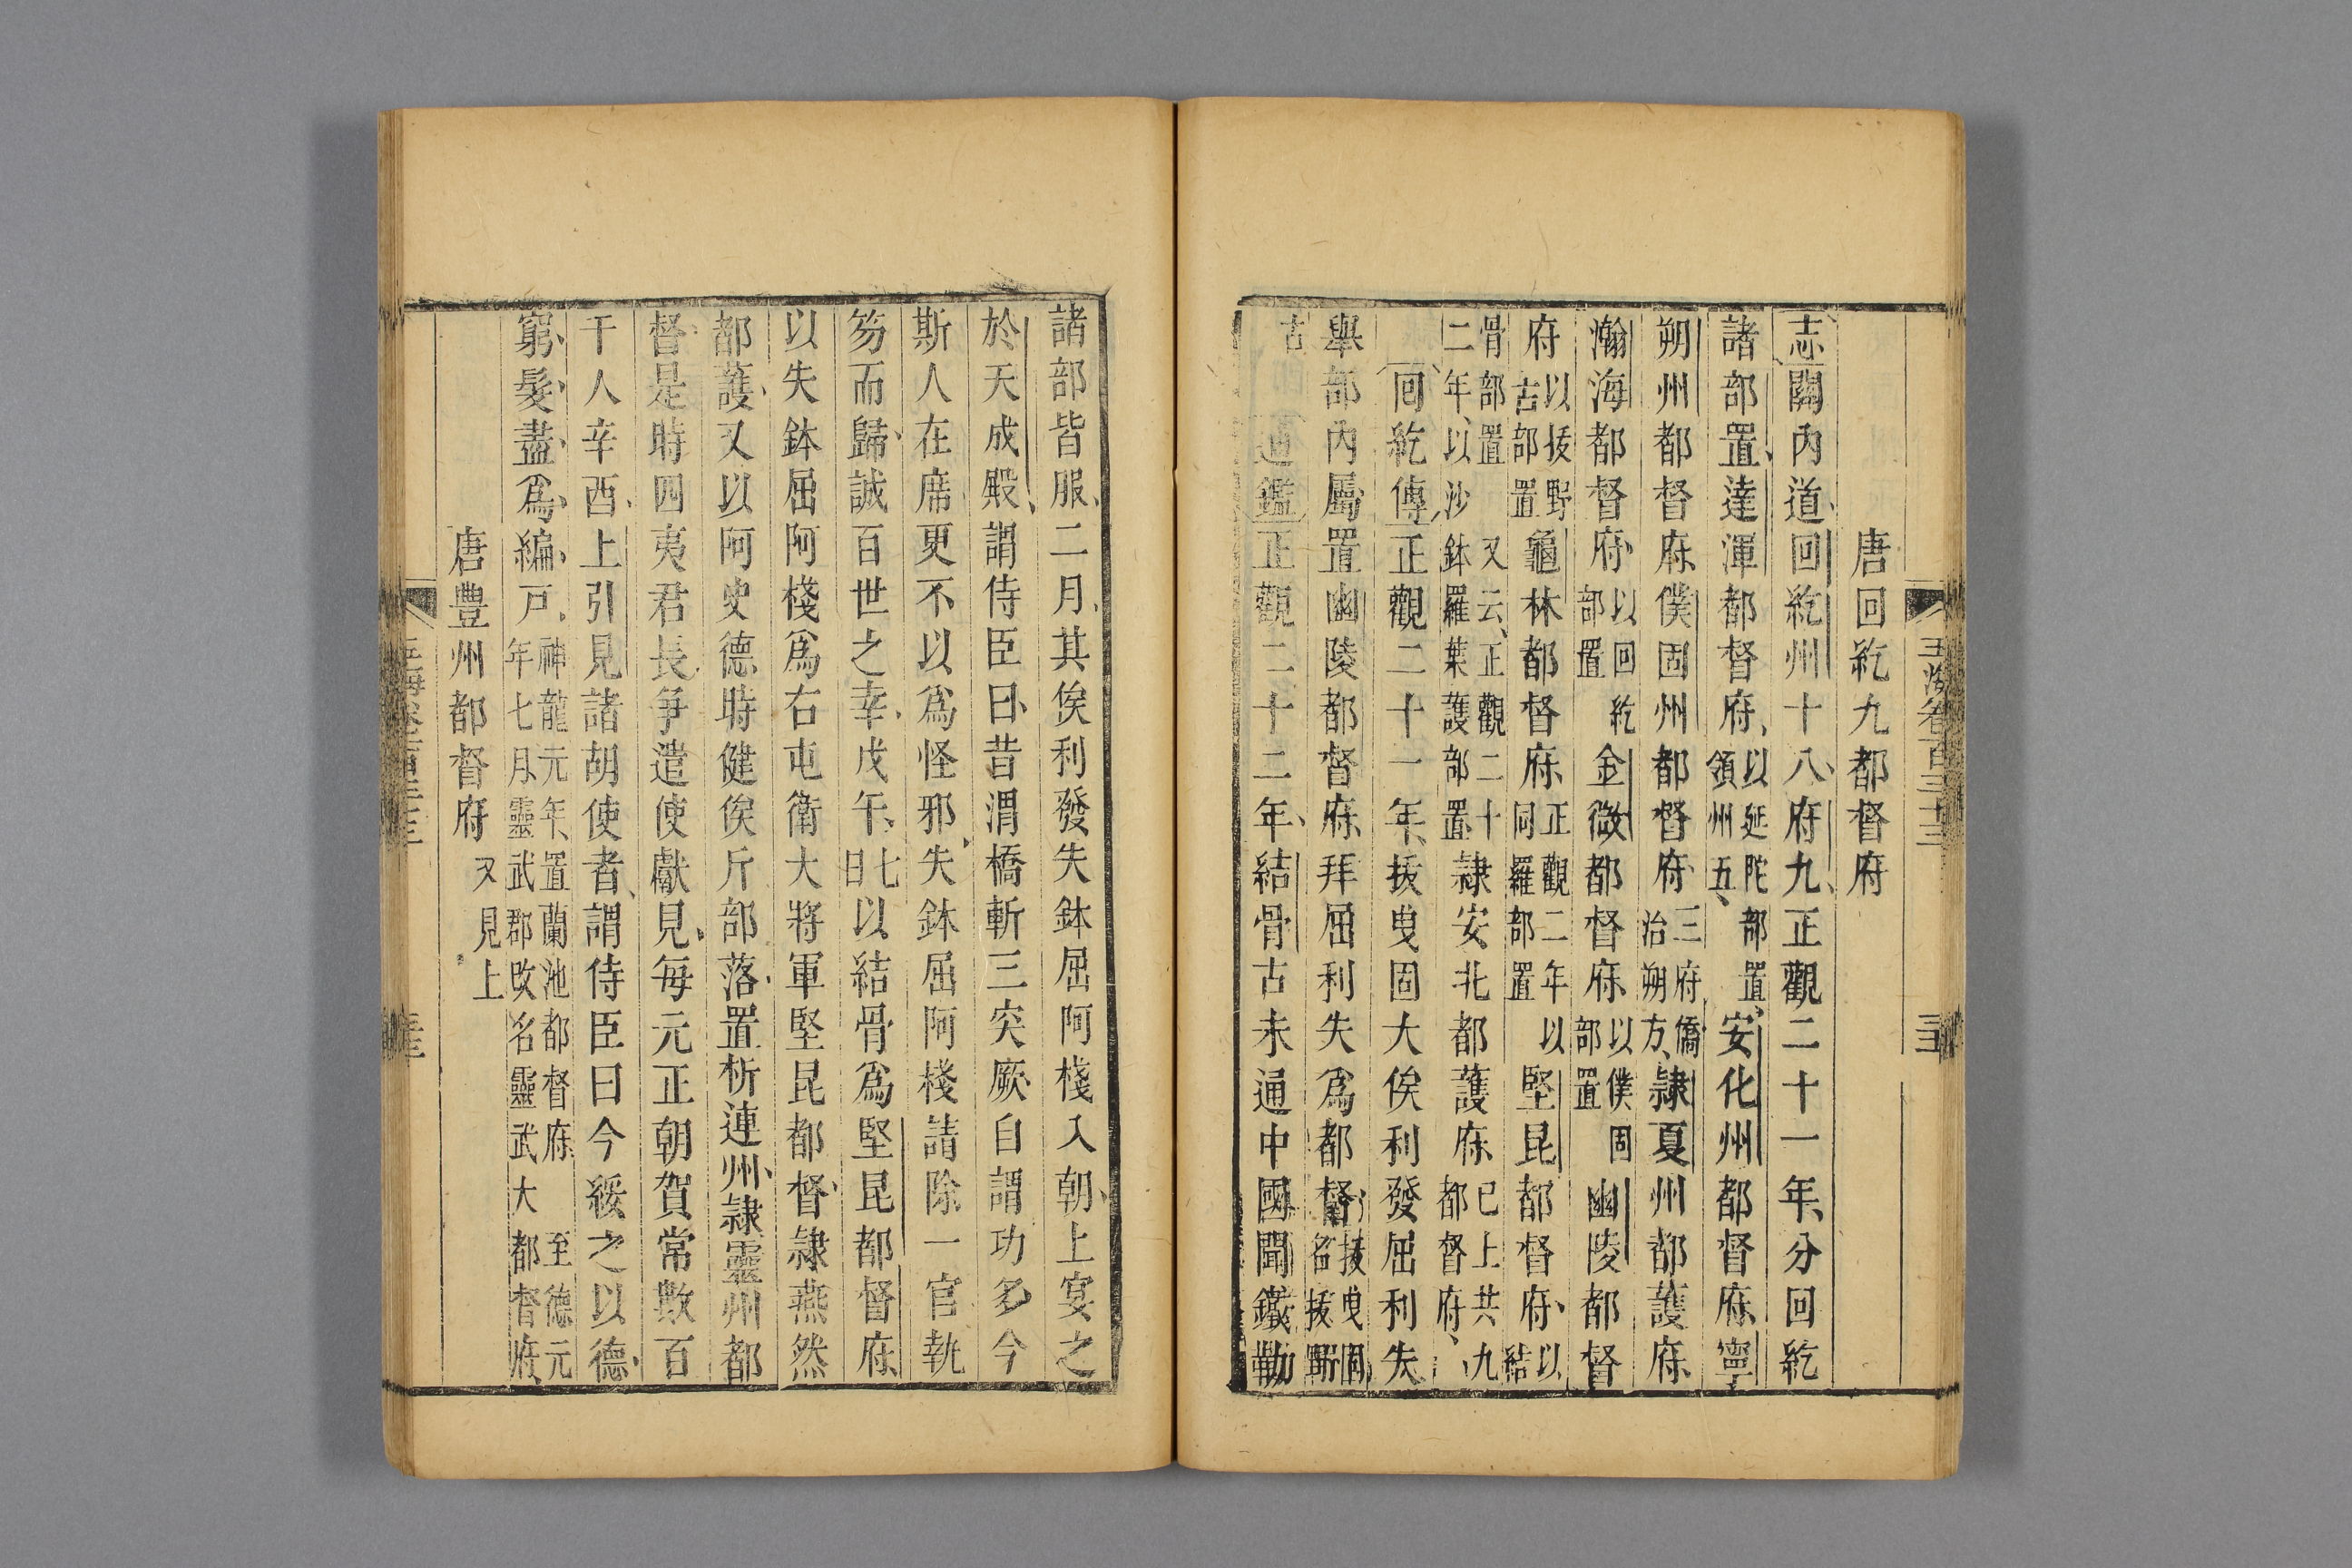 玉海卷百三十三
唐回紇九都督府
志關內道回紇州十八府九正觀二十一年分回紇
諸部置達渾都督府以延陀部置領州五安化州都督府寧
朔州都督府僕固州都督府三府僑治朔方隸夏州都護府
瀚海都督府以回紇部置金微都督府以僕固部置幽陵都督
府以拔野古部置龜林都督府正觀二年以同羅部置堅昆都督府以結
骨部置又云正觀二十二年以沙鉢羅葉護部置隸安北都護府已上共九都督府
回紇傳正觀二十一年拔曳固大俟利發屈利失
舉部內屬置幽陵都督府拜屈利失為都督拔曳固名拔野
古
通鑑正觀二十二年結骨古未通中國聞鐵勒
諸部皆服二月其俟利發失鉢屈阿棧入朝上宴之
於天成殿謂侍臣曰昔渭橋斬三突厥自謂功多今
斯人在席更不以為怪邪失鉢屈阿棧請除一官執
笏而歸誠百世之幸戊午七日以結骨為堅昆都督府
以失鉢屈阿棧為右屯衛大將軍堅昆都督隸燕然
都護又以阿史德時健俟斤部落置析連州隸靈州都
督是時四夷君長爭遣使獻見每元正朝賀常數百
千人辛酉上引見諸胡使者謂侍臣曰今綏之以德
窮髮盡為編戶神龍元年置蘭池都督府至德元年七月靈武郡改名靈武大都督府
唐豐州都督府又見上